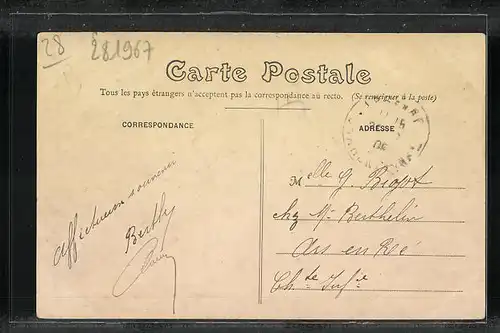 28
281967
Carte Postale
Tous les pays étrangers n'acceptent pas la correspondance au recto. (Se renseigner à la poste)
CORRESPONDANCE
ADRESSE
Affectueux souvenir
Berthy
Mlle G. Bigot
chz Mr Berthelin
Ars en Ré
Chte Infre